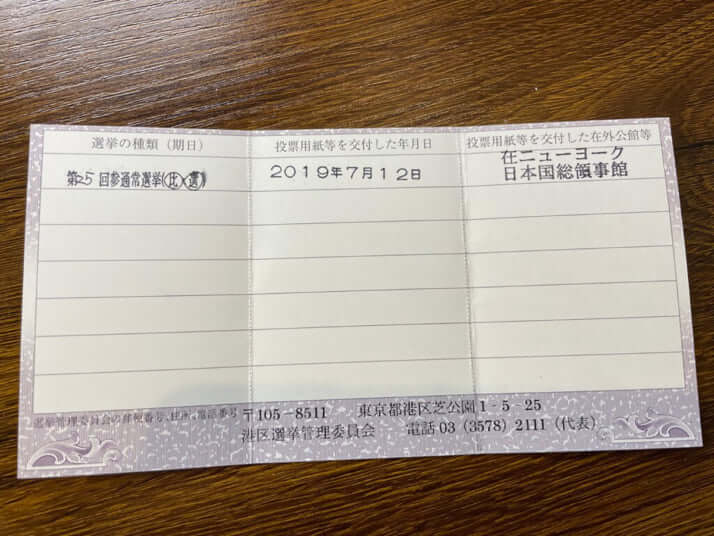 選挙の種類（期日）
投票用紙等を交付した年月日
投票用紙等を交付した在外公館等
第25回参通常選挙(比)(選)
2019年7月12日
在ニューヨーク
日本国総領事館
選挙管理委員会の郵便番号、住所、電話番号
〒105－8511 東京都港区芝公園1-5-25
港区選挙管理委員会 電話03（3578）2111（代表）